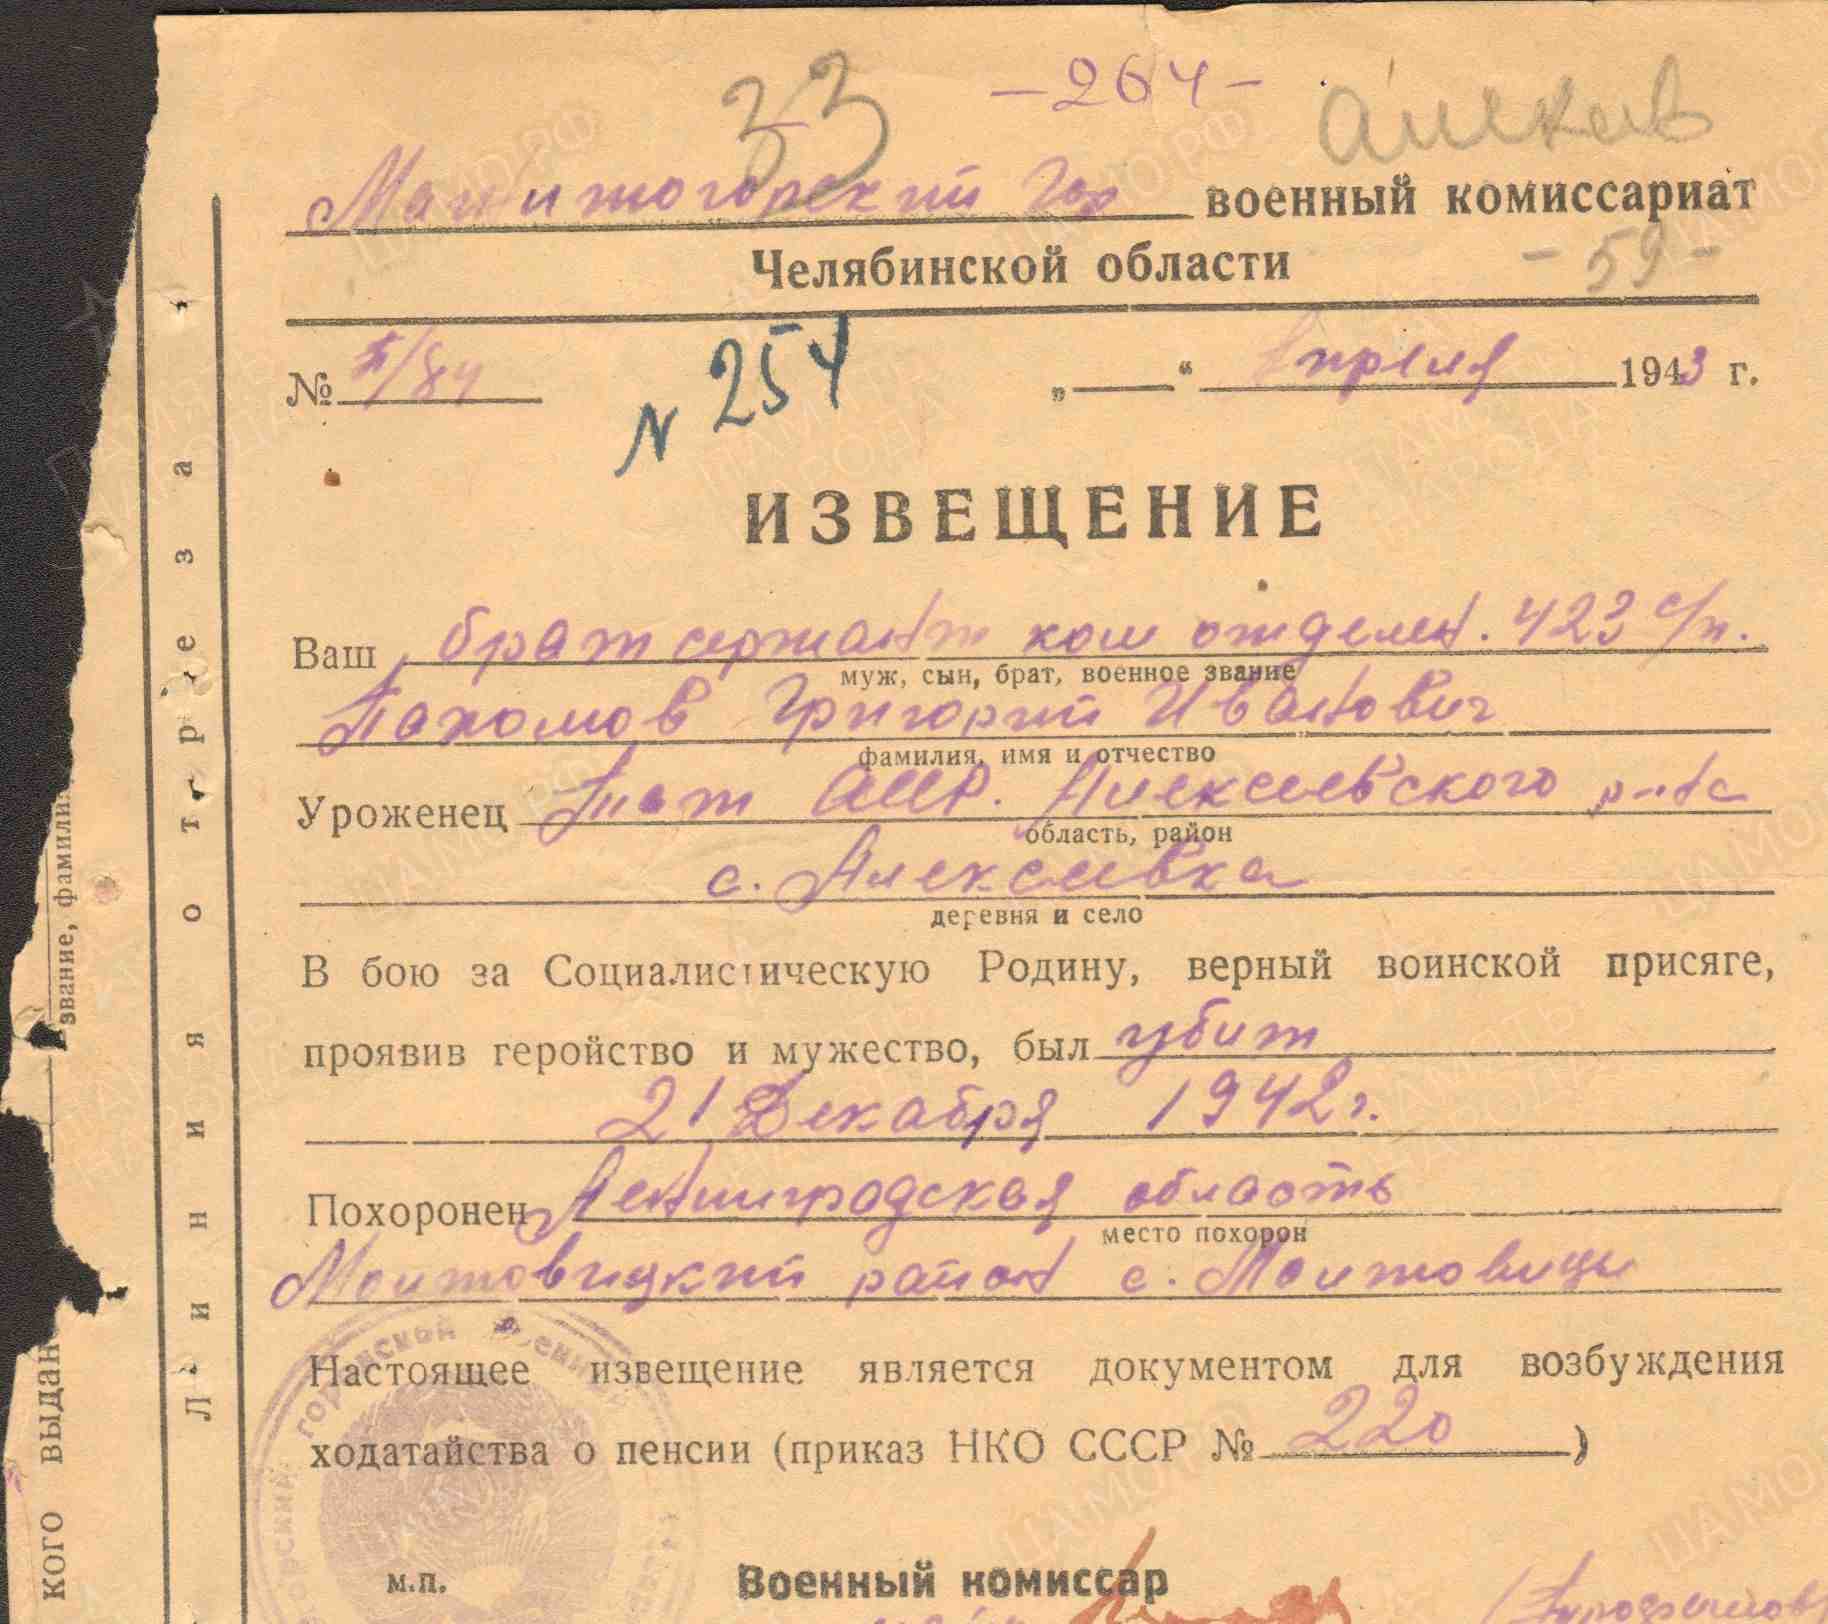 33 -264-
Магнитогорский Гор военный комиссариат
Челябинской области -59-
№ 5/84 N 254 „ “ Апреля 1943 г.
ИЗВЕЩЕНИЕ
Ваш брат сержант ком отделен. 423 с/п.
муж, сын, брат, военное звание
Пахомов Григорий Иванович
фамилия, имя и отчество
Уроженец Тат АССР. Алексеевского р-на
область, район
с. Алексеевка
деревня и село
В бою за Социалистическую Родину, верный воинской присяге,
проявив геройство и мужество, был убит
21 Декабря 1942 г.
Похоронен Ленинградская область
место похорон
Молтовицкий район с. Молтовицы
Настоящее извещение является документом для возбуждения
ходатайства о пенсии (приказ НКО СССР № 220)
м.п. Военный комиссар
Линия отреза
звание, фамили
кого выдан